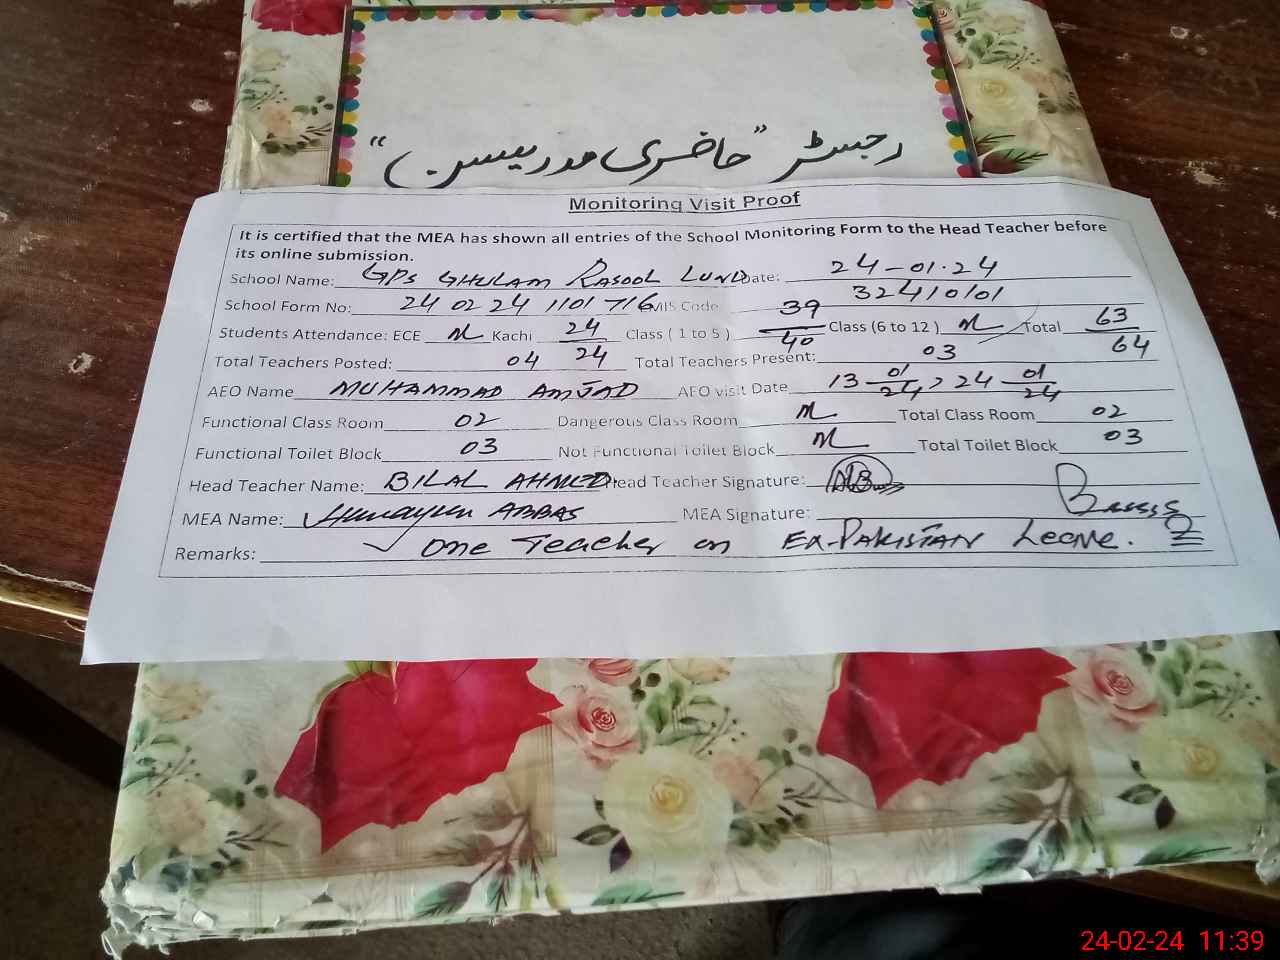 رجسٹر "حاضری مدریسن"
Monitoring Visit Proof
It is certified that the MEA has shown all entries of the School Monitoring Form to the Head Teacher before
its online submission.
School Name: GPS GHULAM RASOOL LUND Date: 24-01-24
School Form No: 24 02 24 1101 716 EMIS Code 32410101
Students Attendance: ECE Nil Kachi 24/24 Class ( 1 to 5 ) 39/40 Class (6 to 12 ) Nil Total 63/64
Total Teachers Posted: 04 Total Teachers Present: 03
AEO Name MUHAMMAD AMJAD AEO visit Date 13-01/24, 24-01/24
Functional Class Room 02 Dangerous Class Room Nil Total Class Room 02
Functional Toilet Block 03 Not Functional Toilet Block Nil Total Toilet Block 03
Head Teacher Name: BILAL AHMED. Head Teacher Signature:
MEA Name: Humayun ABBAS MEA Signature:
Remarks: One Teacher on EX-PAKISTAN Leave.
24-02-24 11:39